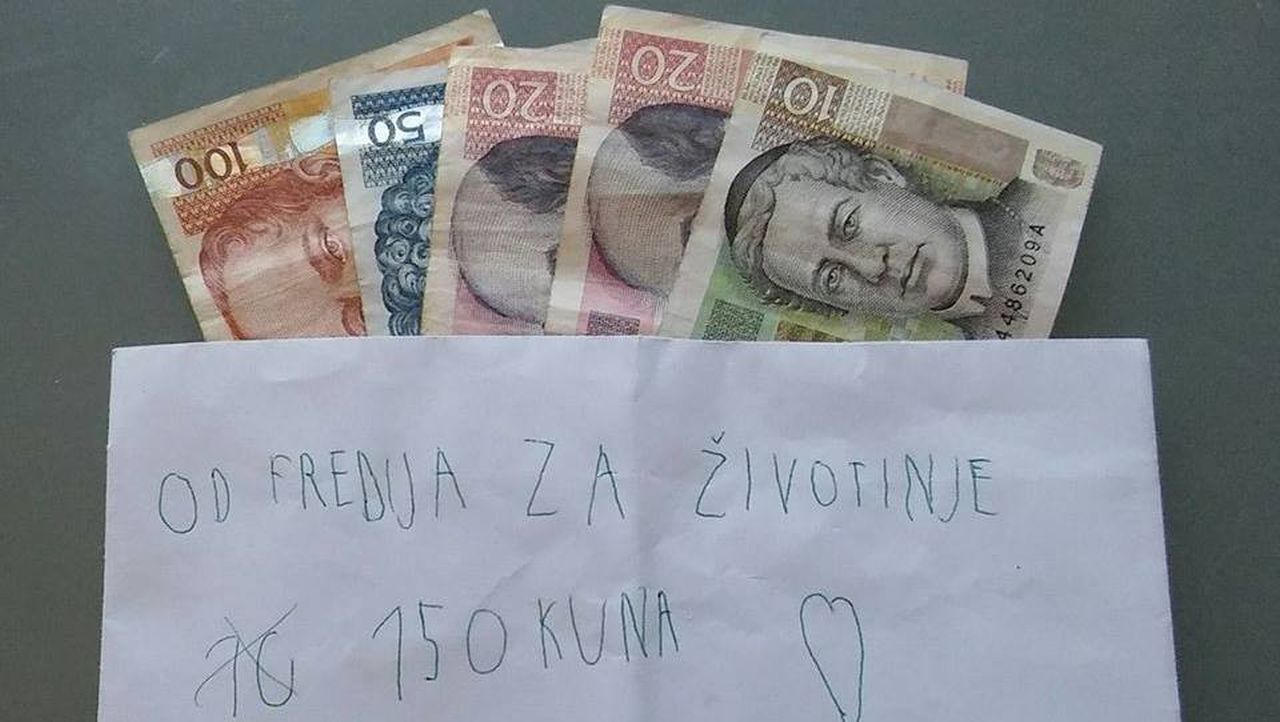 100
50
20
20
10
4486209A
OD FREDIJA ZA ŽIVOTINJE
150 KUNA